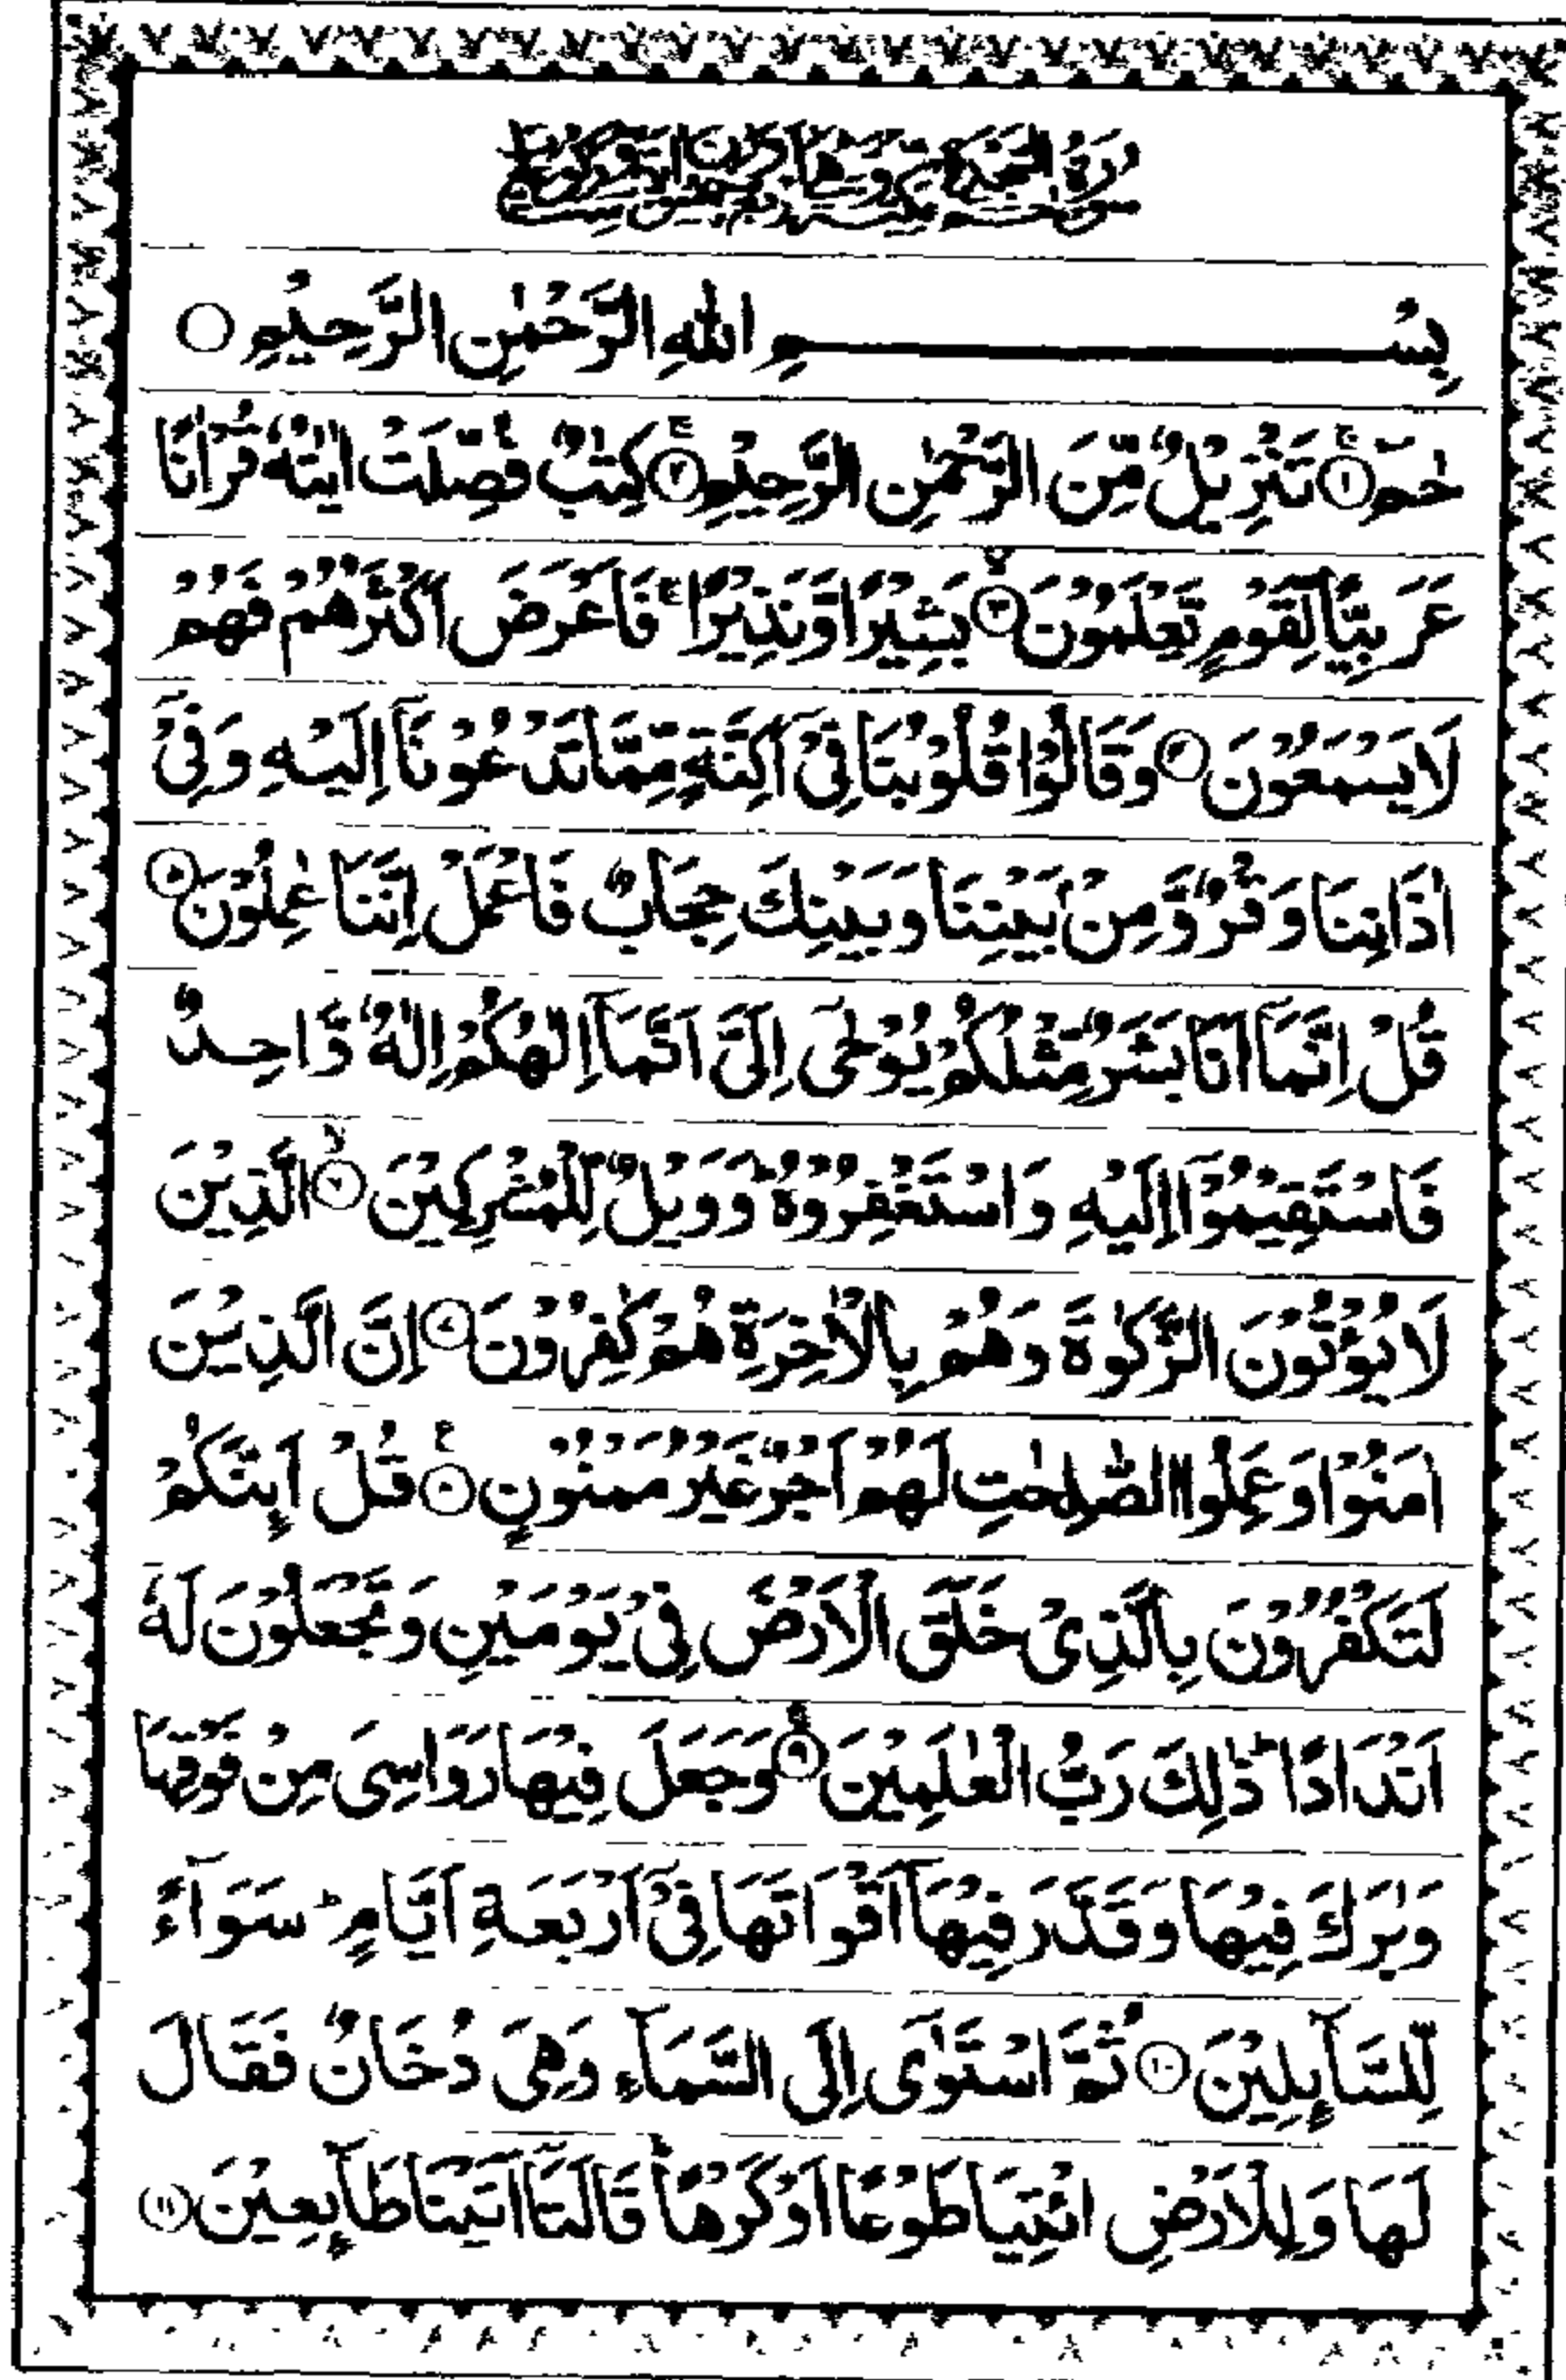 بِسْــــــــــمِ اللهِ الرَّحْمٰنِ الرَّحِيْمِ ○
حٰمٓ ۚ ① تَنْزِيْلٌ مِّنَ الرَّحْمٰنِ الرَّحِيْمِ ۚ ② كِتٰبٌ فُصِّلَتْ اٰيٰتُهٗ قُرْاٰنًا
عَرَبِيًّا لِّقَوْمٍ يَّعْلَمُوْنَ ۙ ③ بَشِيْرًا وَّنَذِيْرًا ۚ فَاَعْرَضَ اَكْثَرُهُمْ فَهُمْ
لَا يَسْمَعُوْنَ ④ وَقَالُوْا قُلُوْبُنَا فِيْٓ اَكِنَّةٍ مِّمَّا تَدْعُوْنَآ اِلَيْهِ وَفِيْٓ
اٰذَانِنَا وَقْرٌ وَّمِنْۢ بَيْنِنَا وَبَيْنِكَ حِجَابٌ فَاعْمَلْ اِنَّنَا عٰمِلُوْنَ ⑤
قُلْ اِنَّمَآ اَنَا بَشَرٌ مِّثْلُكُمْ يُوْحٰٓى اِلَيَّ اَنَّمَآ اِلٰهُكُمْ اِلٰهٌ وَّاحِدٌ
فَاسْتَقِيْمُوْٓا اِلَيْهِ وَاسْتَغْفِرُوْهُ ؕ وَوَيْلٌ لِّلْمُشْرِكِيْنَ ۙ ⑥ الَّذِيْنَ
لَا يُؤْتُوْنَ الزَّكٰوةَ وَهُمْ بِالْاٰخِرَةِ هُمْ كٰفِرُوْنَ ⑦ اِنَّ الَّذِيْنَ
اٰمَنُوْا وَعَمِلُوا الصّٰلِحٰتِ لَهُمْ اَجْرٌ غَيْرُ مَمْنُوْنٍ ۧ ⑧ قُلْ اَئِنَّكُمْ
لَتَكْفُرُوْنَ بِالَّذِيْ خَلَقَ الْاَرْضَ فِيْ يَوْمَيْنِ وَتَجْعَلُوْنَ لَهٗٓ
اَنْدَادًا ؕ ذٰلِكَ رَبُّ الْعٰلَمِيْنَ ۚ ⑨ وَجَعَلَ فِيْهَا رَوَاسِيَ مِنْ فَوْقِهَا
وَبٰرَكَ فِيْهَا وَقَدَّرَ فِيْهَآ اَقْوَاتَهَا فِيْٓ اَرْبَعَةِ اَيَّامٍ ؕ سَوَآءً
لِّلسَّآئِلِيْنَ ⑩ ثُمَّ اسْتَوٰٓى اِلَى السَّمَآءِ وَهِيَ دُخَانٌ فَقَالَ
لَهَا وَلِلْاَرْضِ ائْتِيَا طَوْعًا اَوْ كَرْهًا ؕ قَالَتَآ اَتَيْنَا طَآئِعِيْنَ ⑪